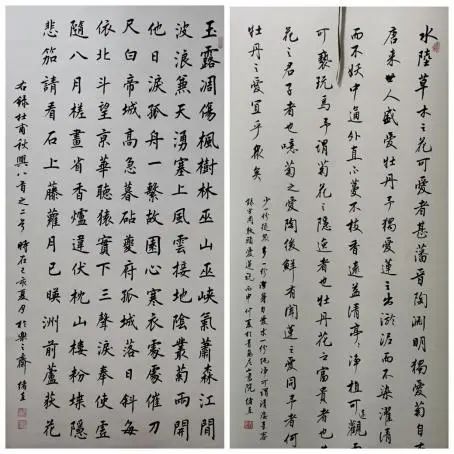 玉露凋傷楓樹林巫山巫峽氣蕭森江間
波浪兼天湧塞上風雲接地陰叢菊兩開
他日淚孤舟一繫故園心寒衣處處催刀
尺白帝城高急暮砧夔府孤城落日斜每
依北斗望京華聽猿實下三聲淚奉使虛
隨八月槎畫省香爐違伏枕山樓粉堞隱
悲笳請看石上藤蘿月已映洲前蘆荻花
右錄杜甫秋興八首之二首 時在己亥夏月於樂之齋 緒
水陸草木之花可愛者甚蕃晉陶淵明獨愛菊自
唐來世人盛愛牡丹予獨愛蓮之出淤泥而不染濯清
而不妖中通外直不蔓不枝香遠益清亭亭淨植可遠觀而
可褻玩焉予謂菊花之隱逸者也牡丹花之富貴者也
花之君子者也噫菊之愛陶後鮮有聞蓮之愛同予者何
牡丹之愛宜乎衆矣